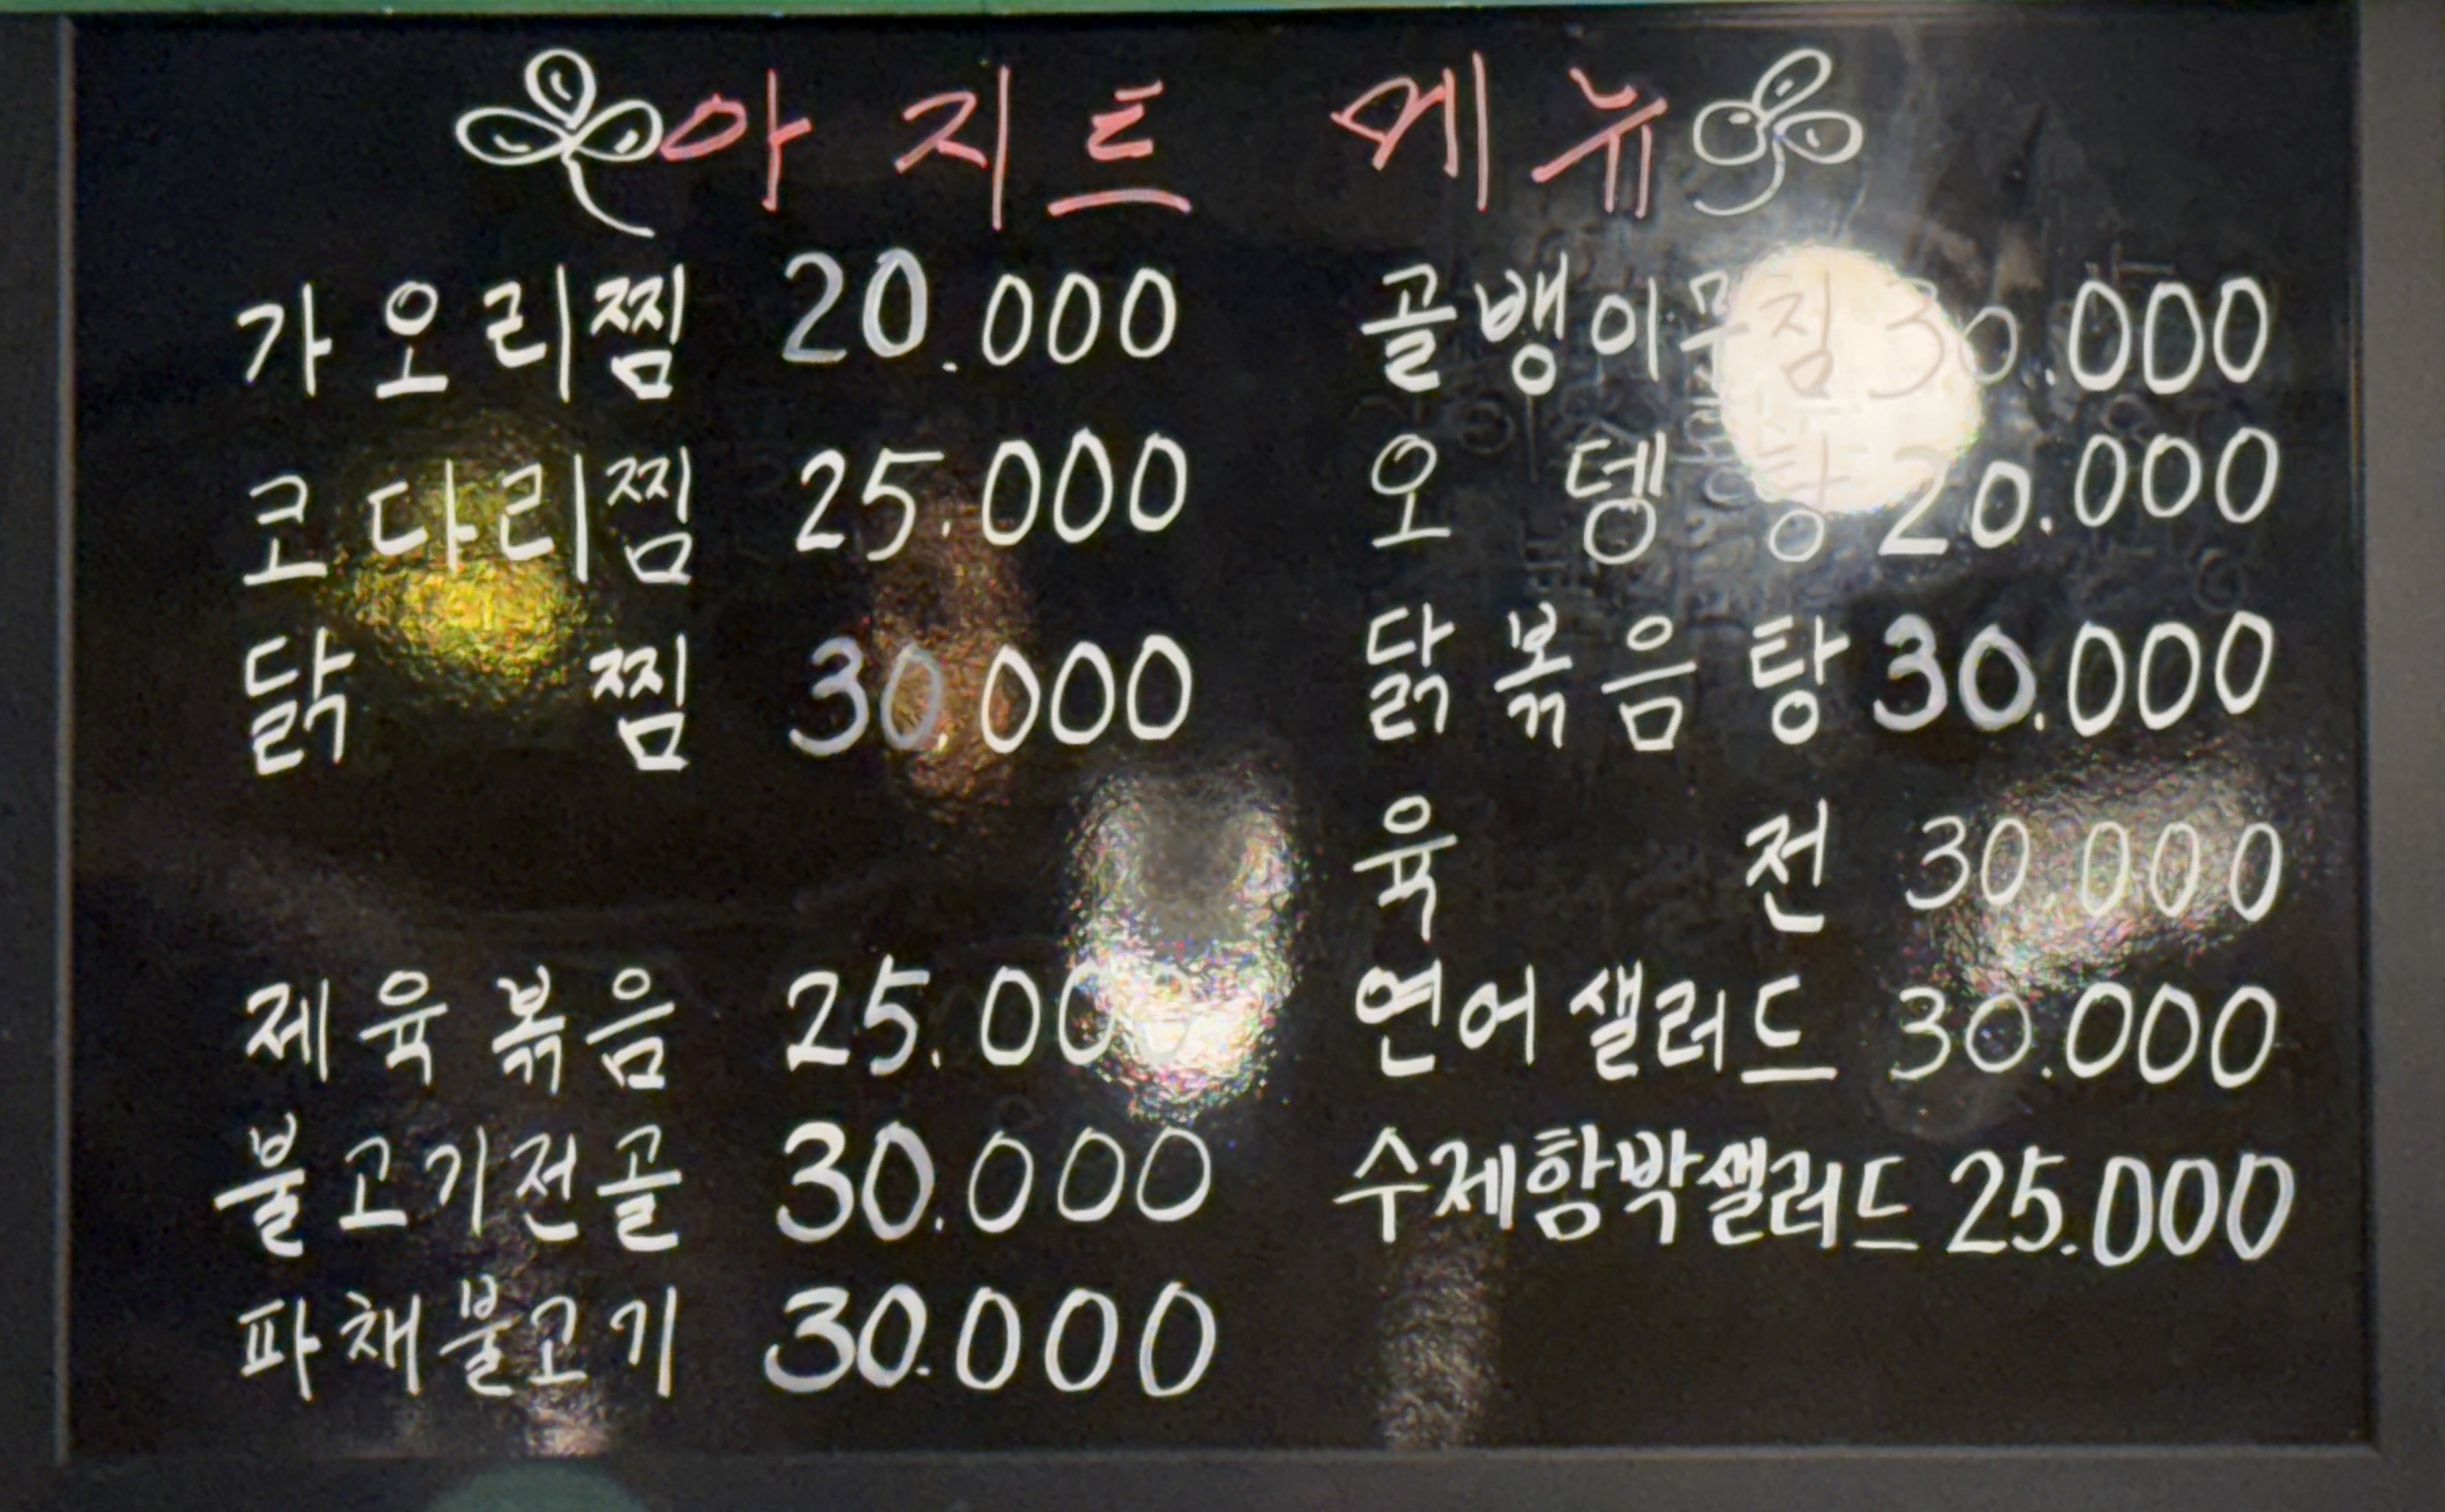 아지트 메뉴
가오리찜 20.000
코다리찜 25.000
닭찜 30.000
제육볶음 25.000
불고기전골 30.000
파채불고기 30.000
골뱅이무침 30.000
오뎅탕 20.000
닭볶음탕 30.000
육전 30.000
연어샐러드 30.000
수제함박샐러드 25.000